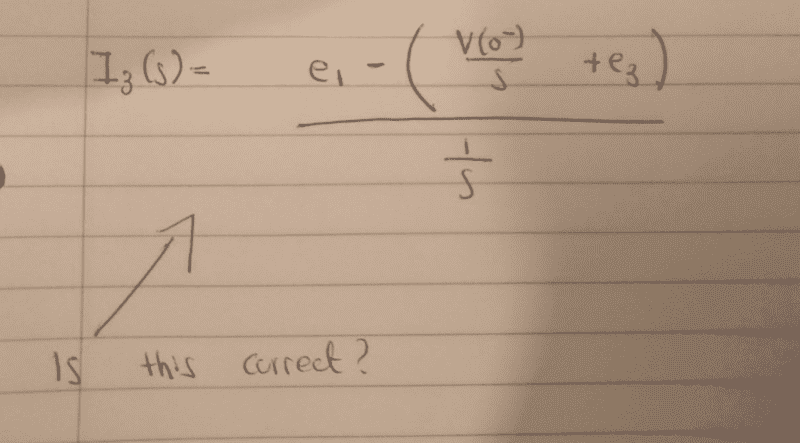 I₃(s) = e₁ - ( V(0⁻)/s + e₃ )
1/s
Is this correct?